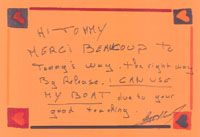 Hi Tommy
MERCI BEAUCOUP to
Torrey's way. The right way
By Release. I CAN USE
MY BOAT due to your
good teaching.